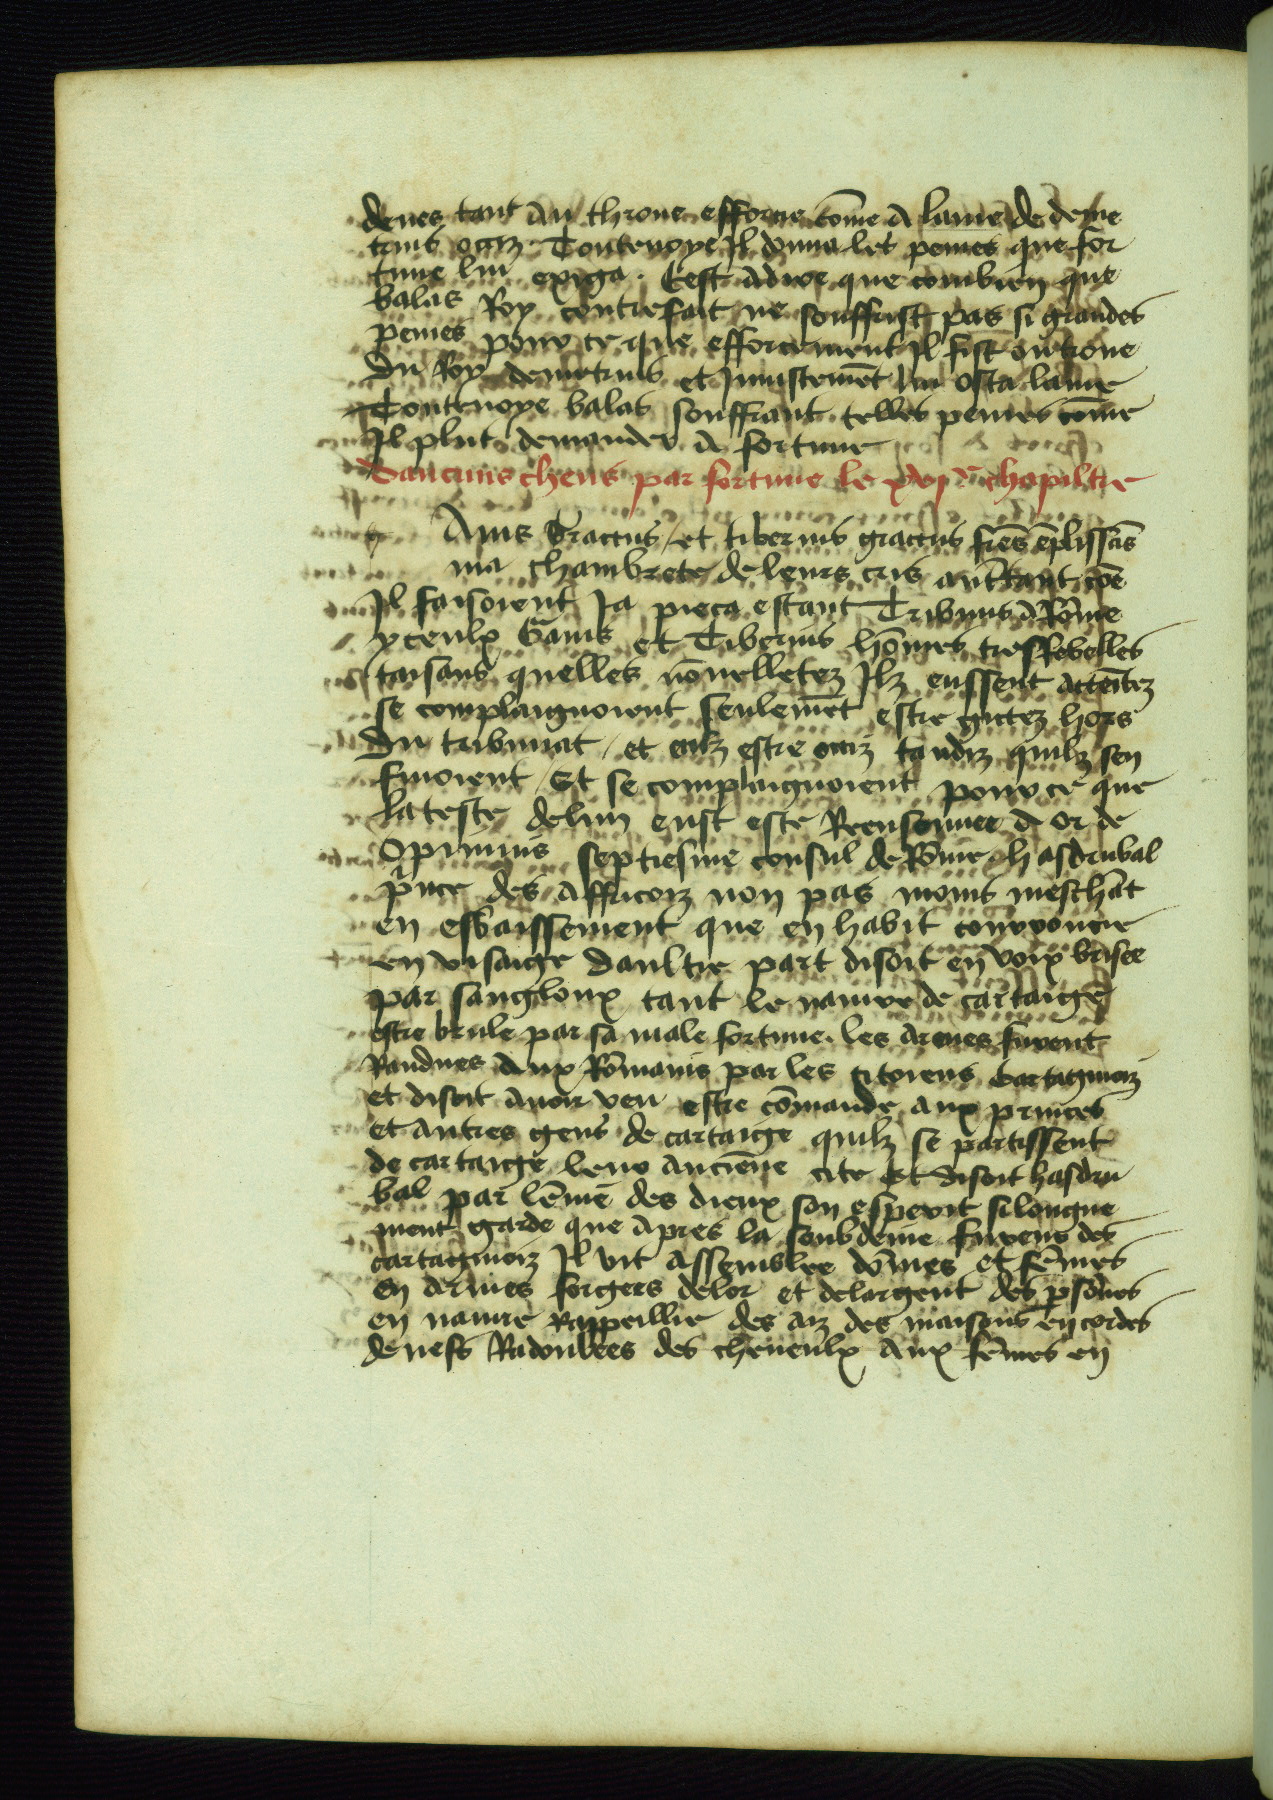 deues tant au throne efforcie cōme a lame de deme
trius occiz Toutevoye Il donna les peines que for
tune lui exiga. Cest adire que combien que
balas Roy contrefait ne souffrist pas si grandes
peines pour ce que efforcement Il fist ou trone
du Roy demetrius et Iniustemēt lui osta lame
Toutevoye balas souffrant telles peines cōme
Il plut demander a fortune
Daucuns cheus par fortune le chapiltre
Aius Graccus / et tiberius graccus frēs ēplissās
ma chambrete de leurs cris autant cōe
Il faisoient Ja pieca estant Tribuns a Rōme
yceulx Gaius et Tiberius hōmes tresrebelles
taisans quelles nouvelletez Ilz eussent actētez
se complaignoient seulemēt estre gictez hors
du tribunat / et eulx estre occiz tandiz quilz sen
fuioient / Et se complaignoient pour ce que
la teste delun eust este Reensonnee d or de
Opimius septiesme consul de Rōme hasdrubal
p̄nce des affricoiz non pas moins meschāt
en esbaissement que en habit courroucie
en visaige daultre part disoit en voix brisee
par sangloux tant le navire de cartaige
estre brule par sa male fortune. les armes furent
Randues aux Rōmains par les citoiens Cartaginoiz
et disoit avoir veu estre cōmande aux princes
et autres gens de cartaige quilz se partissent
de cartaige leur anciēne cite Et disoit hasdru
bal par lēnuie des dieux son esperit si longue
ment garde que apres la soubdeine fureur des
cartaginoiz Il vit assemblee dōmes et fēmes
en armes forgees delor et delargent des p̄sones
en navire Rappeillie des aiz des maisons en cordes
de nefs Radoubees des cheveulx aux fēmes en